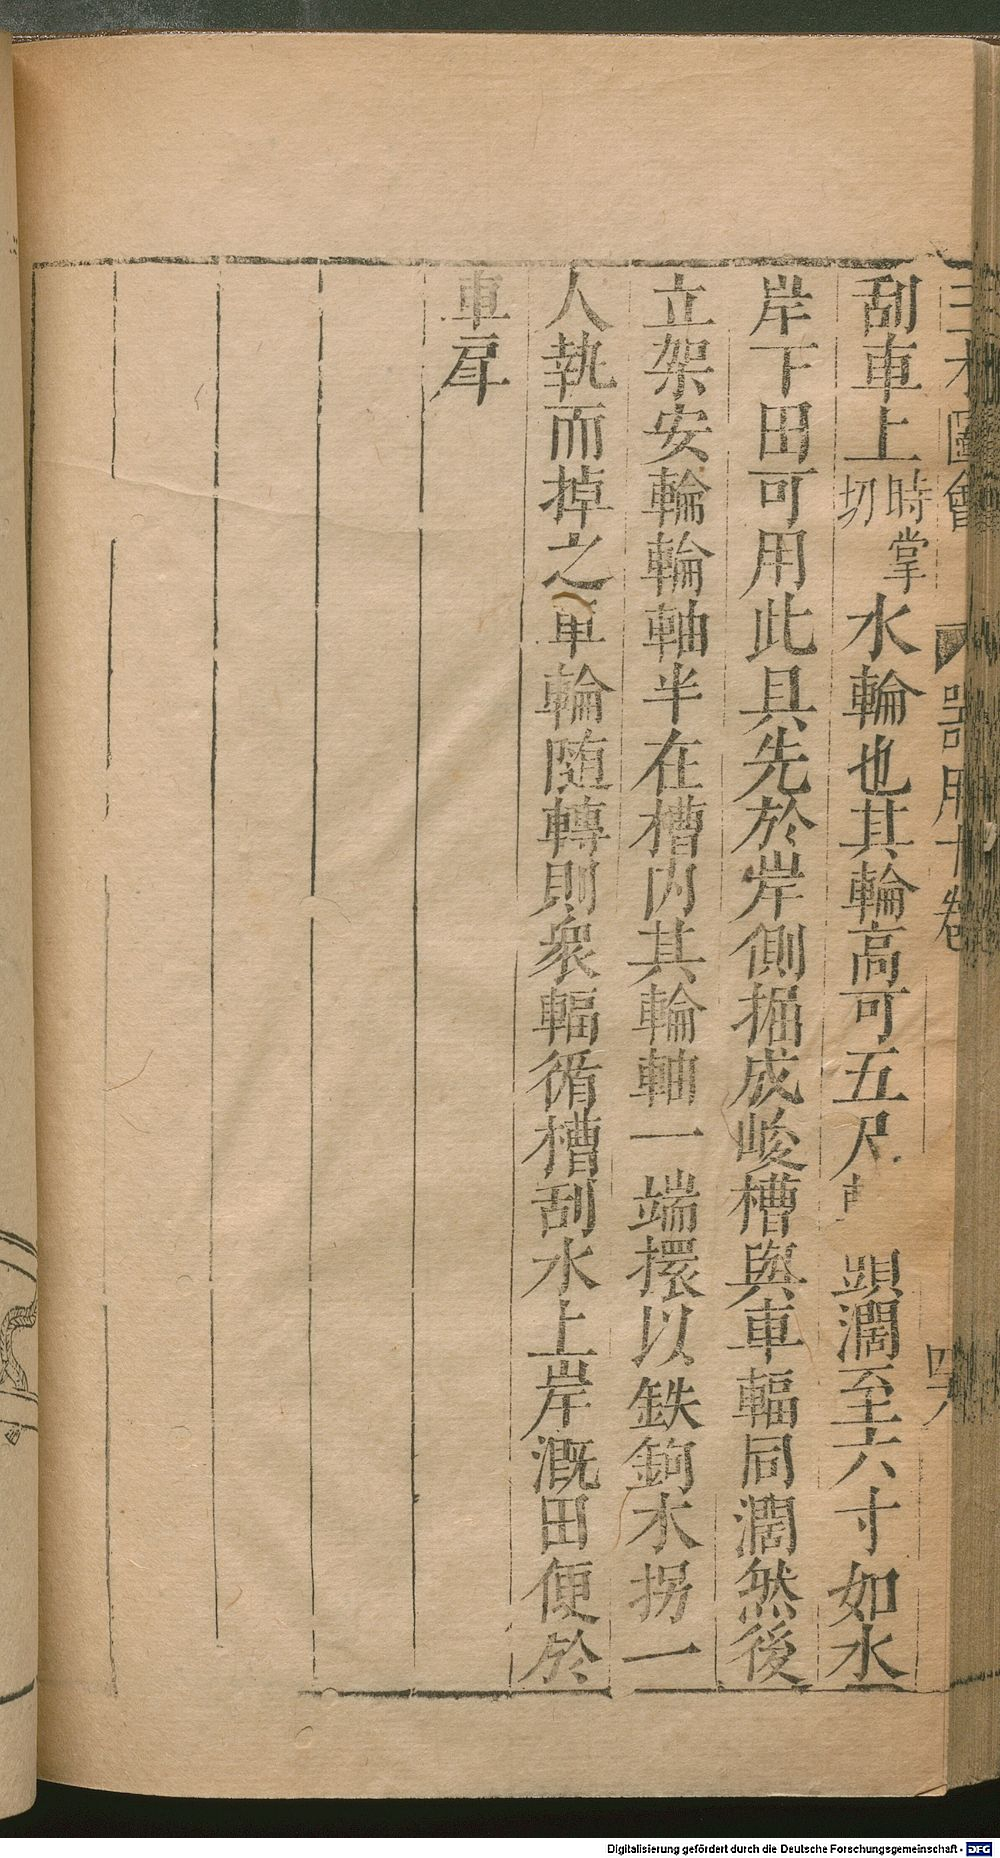 三才圖會 器用十卷 四六
刮車上時掌切水輪也其輪高可五尺頭濶至六寸如水
岸下田可用此具先於岸側掘成峻槽與車輻同濶然後
立架安輪輪軸半在槽内其輪軸一端擐以鉄鉤木拐一
人執而掉之車輪随轉則衆輻循槽刮水上岸溉田便於
車戽
Digitalisierung gefördert durch die Deutsche Forschungsgemeinschaft - DFG